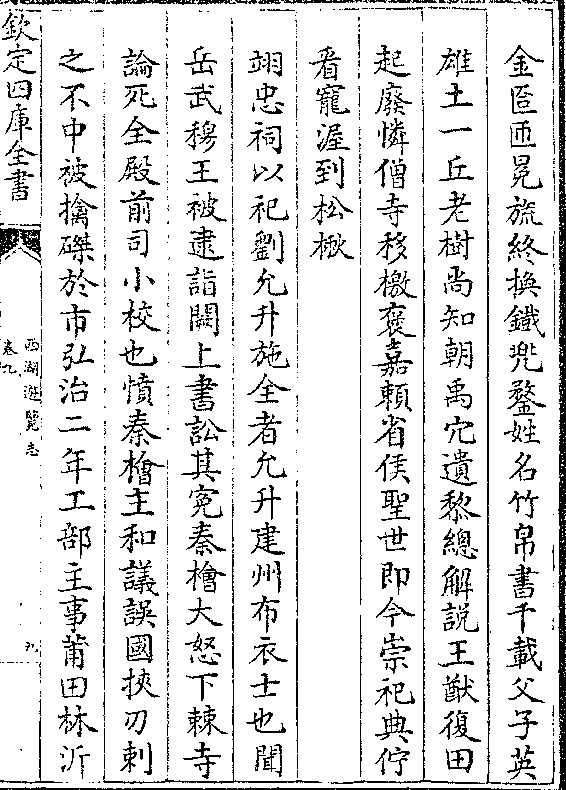 金匼匝冕旒終換鐵兠鍪姓名竹帛書千載父子英
雄土一丘老樹尚知朝禹穴遺黎總解説王猷復田
起廢憐僧寺移檄褒嘉頼省侯聖世即今崇祀典佇
看寵渥到松楸
翊忠祠以祀劉允升施全者允升建州布衣士也聞
岳武穆王被逮詣闕上書訟其寃秦檜大怒下棘寺
論死全殿前司小校也憤秦檜主和議誤國挾刃刺
之不中被擒磔於市弘治二年工部主事莆田林沂
欽定四庫全書
西湖遊覽志
卷九
九